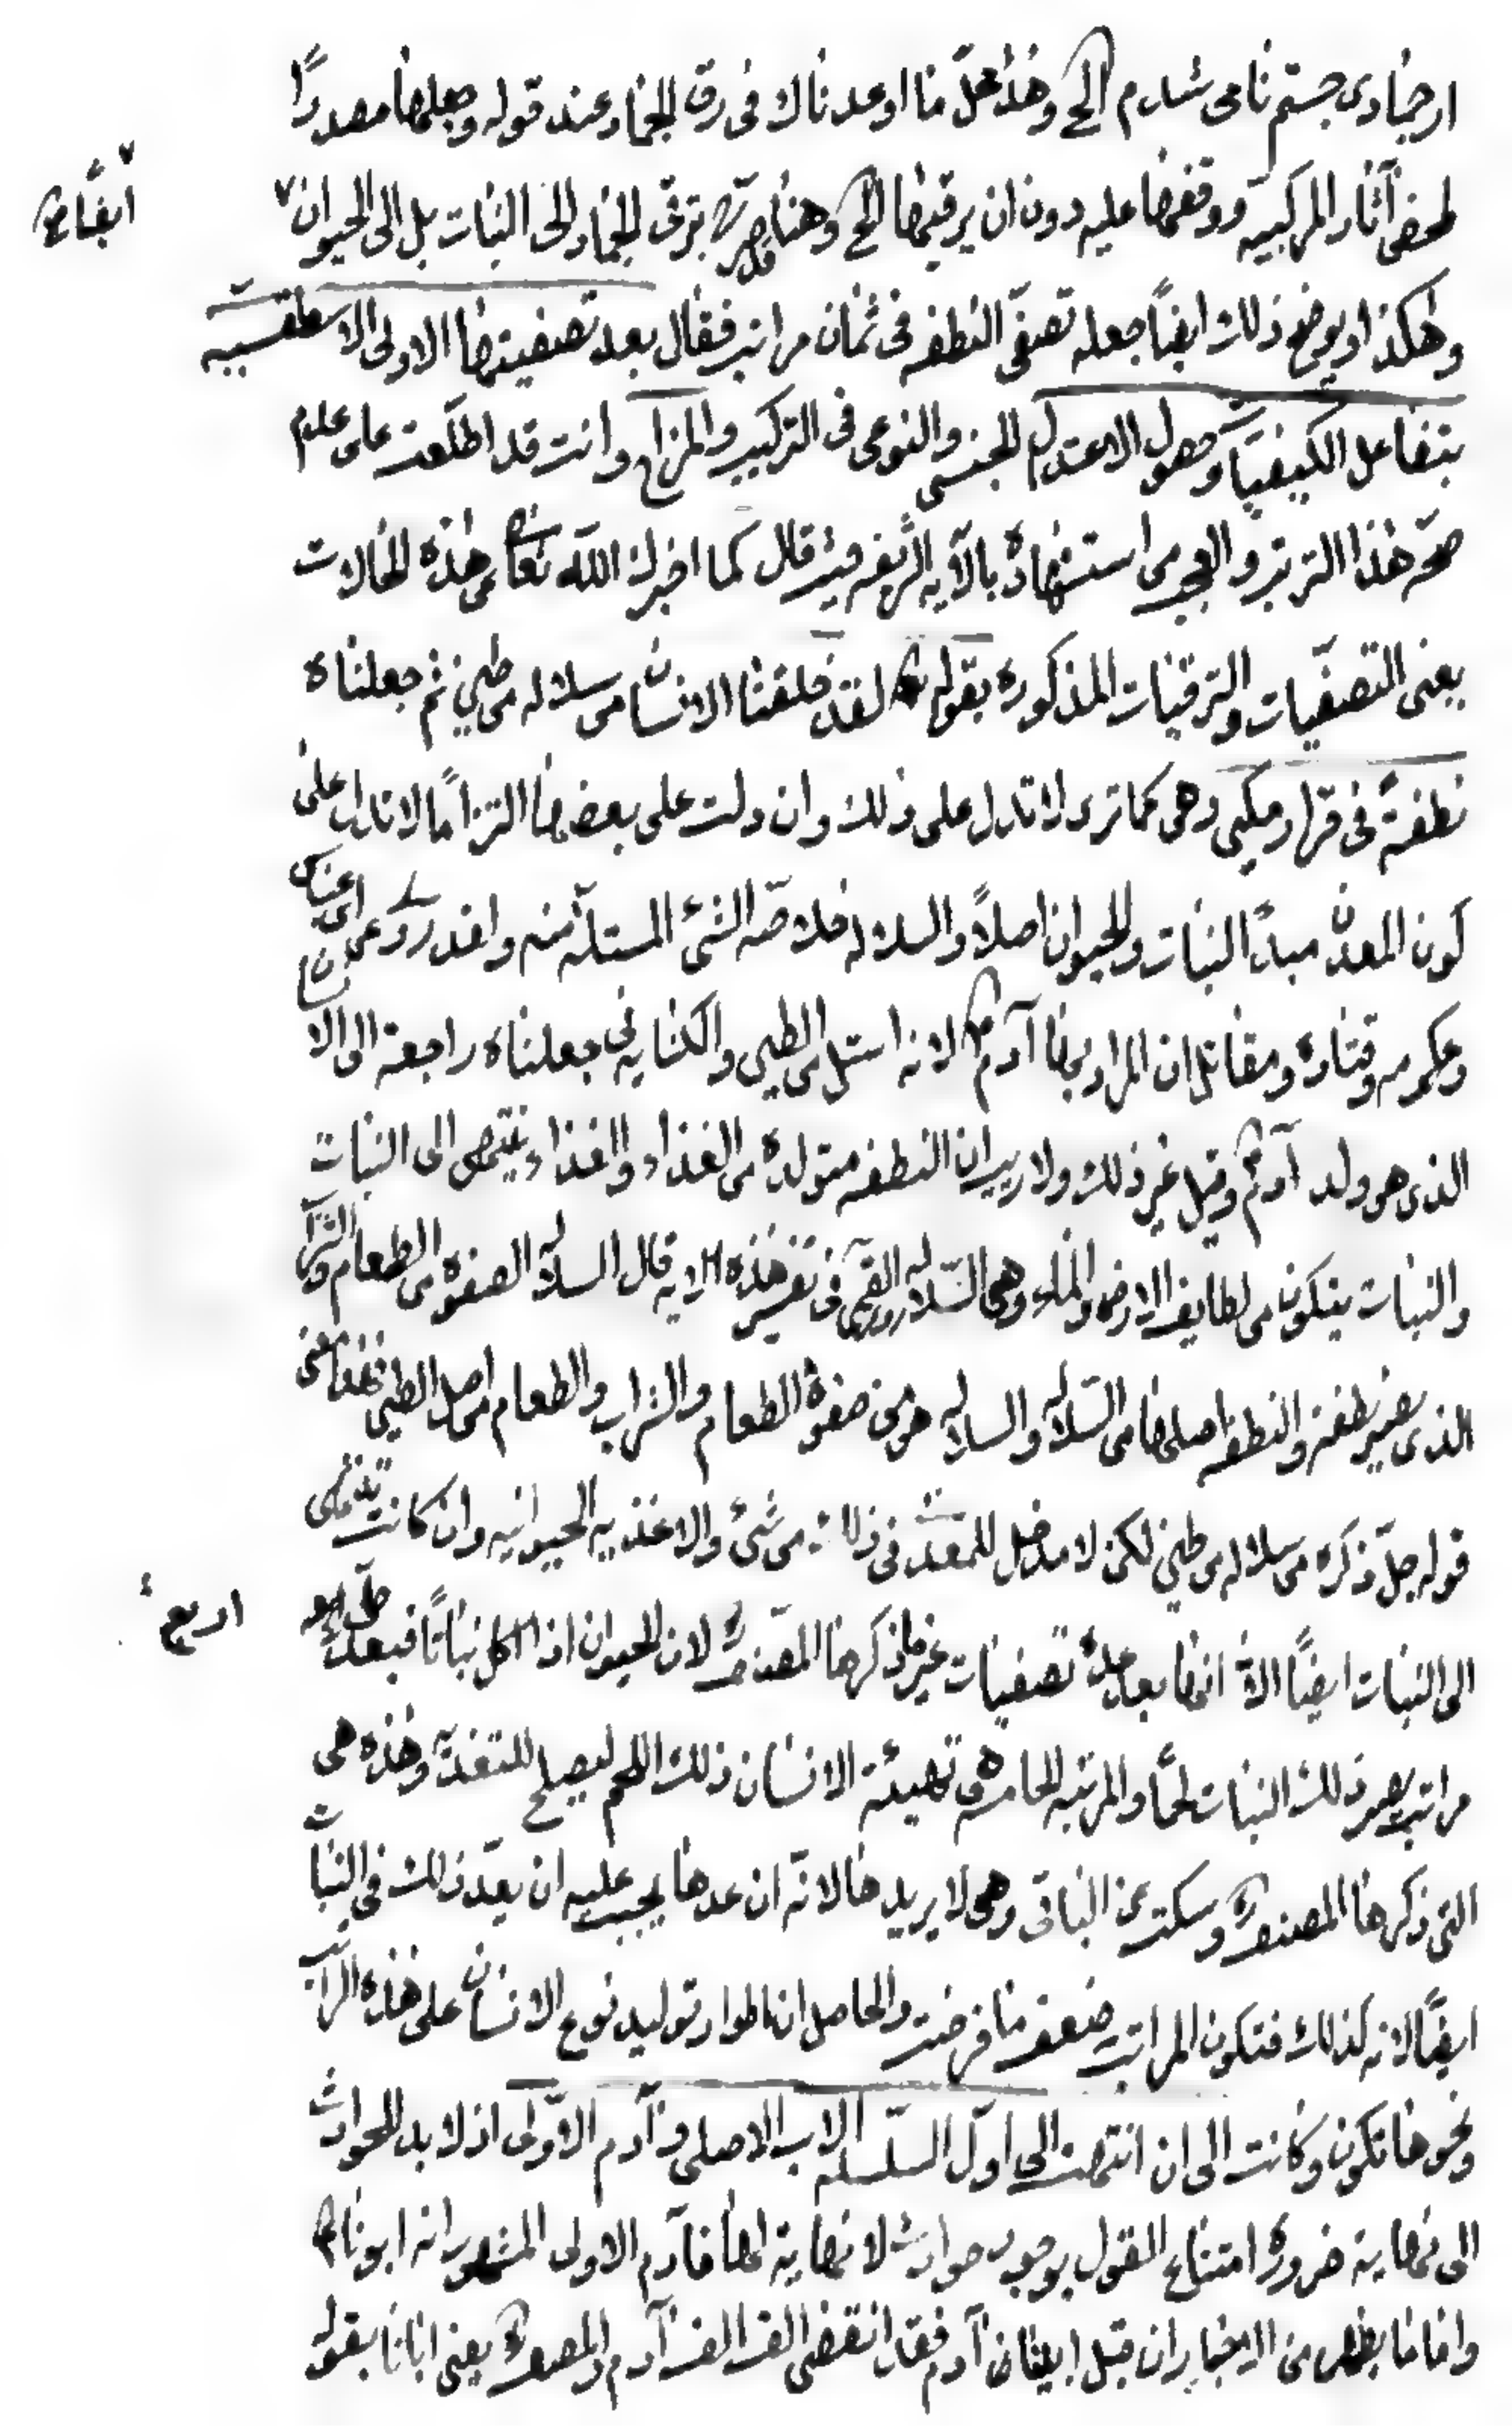 از جمادی جستم نامی شدم الخ وهذا محلّ ما اوعدناك فی رق الجماد عند قوله وجعلها مصدرًا
لمحض آثار المركبیه ووقفها علیه دون ان یرقیها الخ وهنا قد صرّح بترقی الجماد الی النبات بل الی الحیوان
ایضًا صح
وهكذا ویوضح ذلك ایضًا جعله تصفّی النطفه فی ثمان مراتب فقال بعد تصفیتها الاولی الاسطقسیّه
بتفاعل الكیفیات وحصول الاعتدال الجنسی والنوعی فی التركیب والمزاج وانت قد اطلّعت علی عدم
صحّه هذا الترتیب والعجب من استشهاده بالآیه الشریفه حیث قال كما اخبرك اللّه تعالی من هذه الحالات
یعنی التصفیات والترقیات المذكوره بقوله تع لقد خلقنا الانسان من سلاله من طین ثم جعلناه
نطفةً فی قرار مكین وهی كما تری لا تدل علی ذلك وان دلت علی بعضها التزامًا لا تدل علی
كون المعدن مبدأ النبات والحیوان اصلًا والسلاله خلاصّه الشیء المستلّه منه وقد روی عن ابن عباس
وعكرمه وقتاده ومقاتل ان المراد بها آدم ع لانه استل من الطین والكنایه فی جعلناه راجعة الی الانسان
الذی هو ولد آدم ع وقیل غیر ذلك ولا ریب ان النطفه متولده من الغذاء والغذاء ینتهی الی النبات
والنبات یتكون من لطایف الارض والماء وهی السّلاله وروی القمی فی تفسیر هذه الآیه قال السلاله الصفوه من الطعام والشراب
الذی یصیر نطفة والنطفه اصلها من السّلاله والسلاله هو من صفوة الطعام والشراب والطعام من اصل الطین فهذا معنی
قوله جلّ ذكره من سلاله من طین لكن لا مدخل للمعدن فی ذلك من شیء والاغذیه الحیوانیه وان كانت تنتهی
الی النبات ایضًا الّا انها بعد تصفیات غیر ما ذكرها المصّنف ره لان الحیوان اذا اكل نباتًا فبعد
اربع
مراتب یصیر ذلك النبات لحمًا والمرتبه الخامسه فی تهیئة الانسان ذلك اللحم لیصلح للتغذیه وهذه هی
التی ذكرها المصنف ره وسكت عن الباقی وهی لا یریدها لانّه ان عدها یجب علیه ان یعدّ ذلك فی النبات
ایضًا لانه كذلك فتكون المراتب ضعف ما فرضت والحاصل ان اطوار تولید نوع الانسان علی هذه المراتب
ونحوها تكون وكانت الی ان انتهت الی اول السّلسله الاب الاصلی وآدم الاوّلی اذ لا بد للحوادث
الی نهایة ضروره امتناع القول بوجود حوادث لا نهایة لها فآدم الاولی المشهور انه ابونا ع
واما ما یظهر من الاخبار ان قبل ابینا آدم فقد انقضی الف الف آدم والمصنف ره یعنی ابانا بقوله